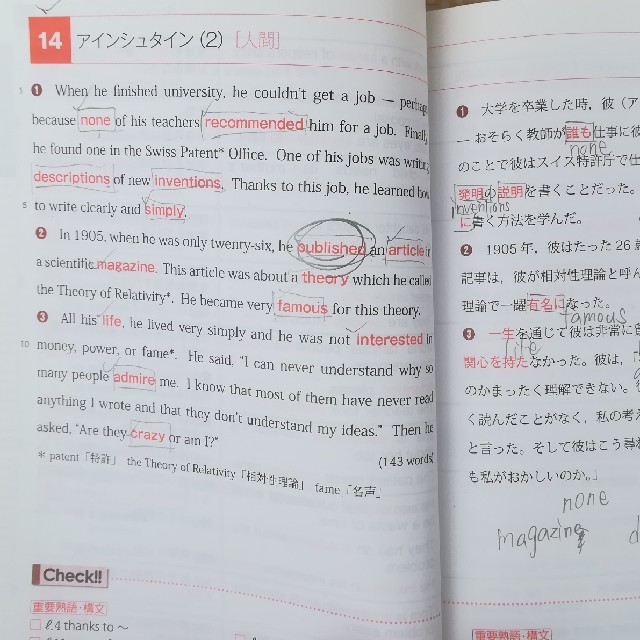 14 アインシュタイン (2) [人間]
❶ When he finished university, he couldn't get a job — perhaps
because none of his teachers recommended him for a job. Finally,
he found one in the Swiss Patent* Office. One of his jobs was writing
descriptions of new inventions. Thanks to this job, he learned how
5 to write clearly and simply.
❷ In 1905, when he was only twenty-six, he published an article in
a scientific magazine. This article was about a theory which he called
the Theory of Relativity*. He became very famous for this theory.
❸ All his life, he lived very simply and he was not interested in
10 money, power, or fame*. He said, "I can never understand why so
many people admire me. I know that most of them have never read
anything I wrote and that they don't understand my ideas." Then he
asked, "Are they crazy or am I?"
(143 words)
* patent「特許」 the Theory of Relativity「相対性理論」 fame「名声」
Check!!
重要熟語・構文
ℓ.4 thanks to ～
❶ 大学を卒業した時，彼（ア
— おそらく教師が誰も仕事に彼
none
のことで彼はスイス特許庁で仕
発明の説明を書くことだった。
inventions
に書く方法を学んだ。
❷ 1905年，彼はたった26歳
記事は，彼が相対性理論と呼ん
理論で一躍有名になった。
famous
❸ 一生を通じて彼は非常に
life
関心を持たなかった。彼は，
のかまったく理解できない。
く読んだことがなく，私の考え
と言った。そして彼はこう尋ね
も私がおかしいのか。」
none
magazine
重要熟語・構文